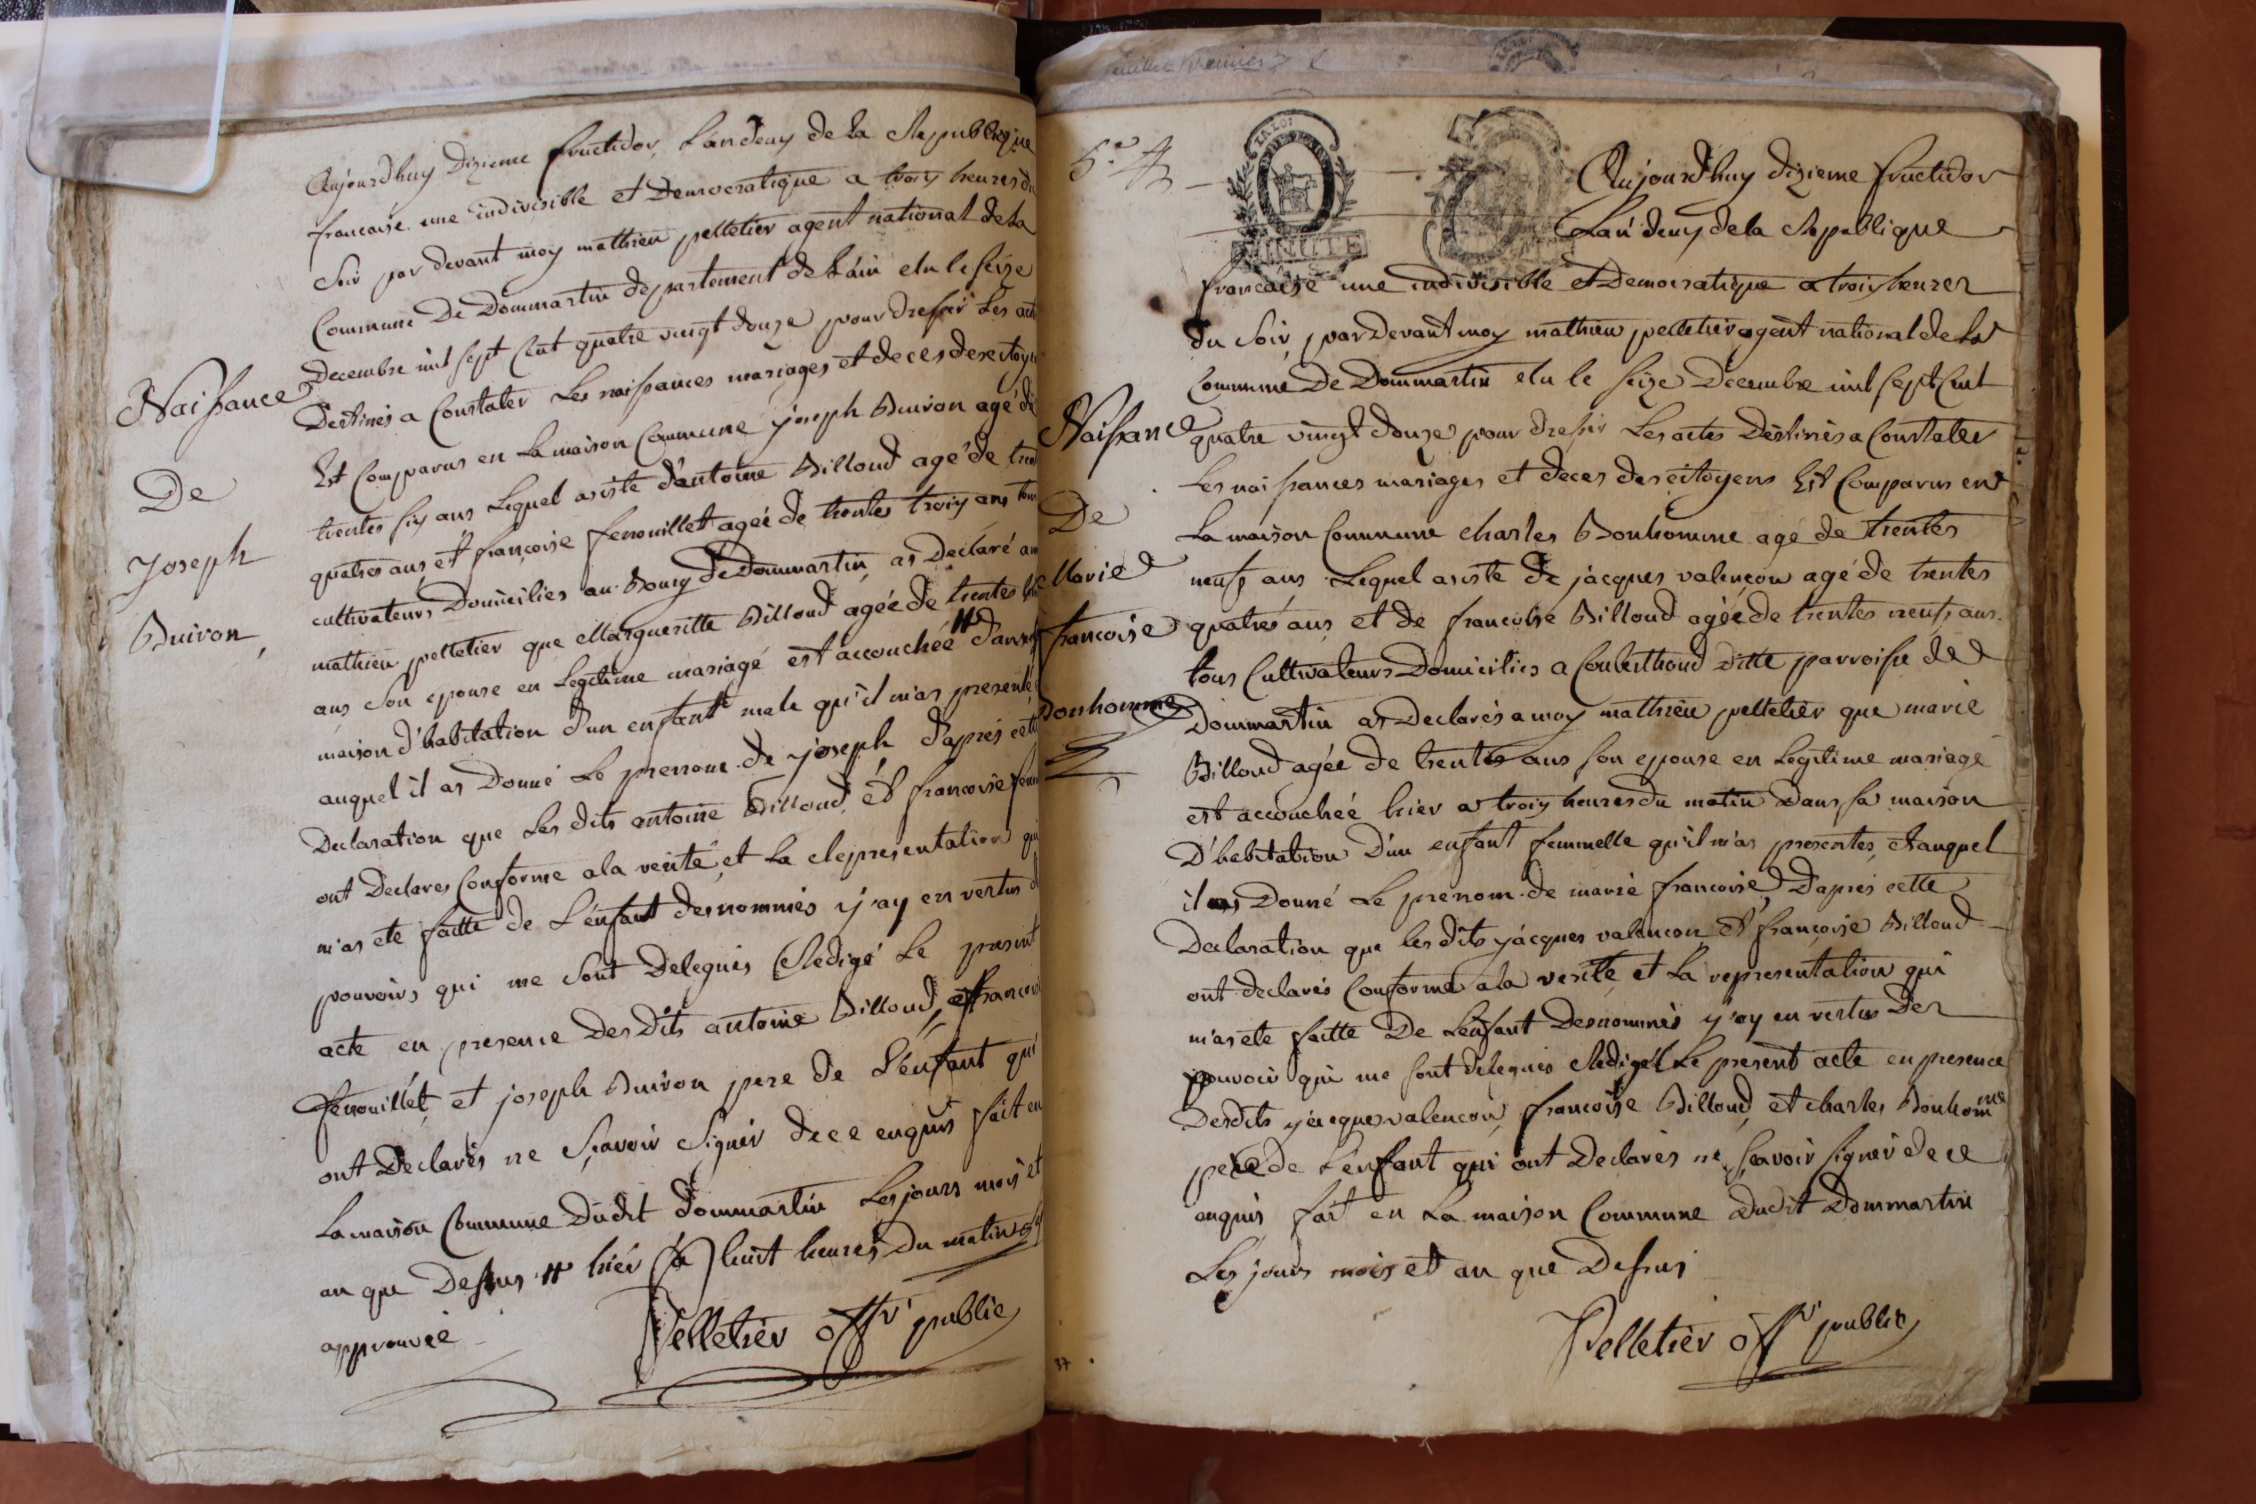 Aujourdhuy dizieme fructidor, L'an deuy de la Republique
francaise une indivisible et Democratique a troiy heures du
Soir par devant moy mathieu pelletier agent national de La
Commune De Dommartin departement de L'ain elu le seize
Decembre mil sept Cent quatre vingt douze pour dresser Les act
Destinés a Constater Les naissances mariages et deces des citoye
Est Comparus en La maison Commune joseph Buiron agé de
trentes six ans Lequel asisté d'antoine Billoud agé de tren
quatres ans et françoise fenouillet ageé de trentes troiy ans tous
cultivateurs Domicilies au Bourg de Dommartin as Declaré a m
mathieu pelletier que Margueritte Billoud agée de trentes
ans son epouse en Legitime mariagé est accouchée # dans sa
maison d'habitation d'un enfant male qu'il m'as presenté
auquel il as Donné Le prenom de joseph, d'aprés cette
Declaration que Les dits antoine Billoud et francoise fenou
ont Declares Conforme a la verité, et La Representation qui
m'as eté faitte de L'enfant desnommés j'ay en vertus d
pouvoirs qui me sont Delegués Redigé Le present
acte en presence Des Dits antoine Billoud, et francois
fenouillet et joseph Buiron pere de L'enfant qui
ont Declarés ne Sçavoir Signer de ce enquis fait en
La maison Commune Dudit dommartin Les jours mois et
an que Dessus # hier (a) huit heures du matin
approuvé
Pelletier offr public
Naissance
De
Joseph
Buiron,
LA LOI
Aujourdhuy dizieme fructidor
L'an deuy de la Republique
francaise une indivisible et Democratique a troiy heures
du Soir, par Devant moy mathieu pelletier agent national de La
Commune De Dommartin elu le seize Decembre mil sept Cent
quatre vingt douze pour dresser Les actes Destinés a Constater
Les naissances mariages et deces des citoyens Est Comparus en
La maison Commune charles Bonhomme agé de trentes
neufs ans Lequel asisté de jacques valençon agé de trentes
quatrés ans et de francoise Billoud agée de trentes neufs ans
tous Cultivateurs Domicilies a Couberthoud ditte parroisse de
Dommartin as Declarés a moy mathieu pelletier que marie
Billoud agée de trentes ans son epouse en Legitime mariage
est accouchée hier a troiy heures du matin Dans sa maison
D'habitation D'un enfant femmelle qu'il m'as presentes, et auquel
il as Donné Le prenom de marie francoise, D'aprés cette
Declaration que Les dits jacques valencon et françoise Billoud
ont declarés Conforme a la verité et La representation qui
m'as eté faitte De L'enfant Desnommés j'ay en vertus Des
pouvoir qui me sont delegués Redigé Le present acte en presence
Des dits jacques valencon, francoise Billoud et charles Bonhomme
pere de L'enfant qui ont Declarés ne Sçavoir signer de ce
enquis fait en La maison Commune Dudit Dommartin
Les jours mois et an que Dessus
Pelletier offr public
Naissance
De
Marie
francoise
Bonhomme
37